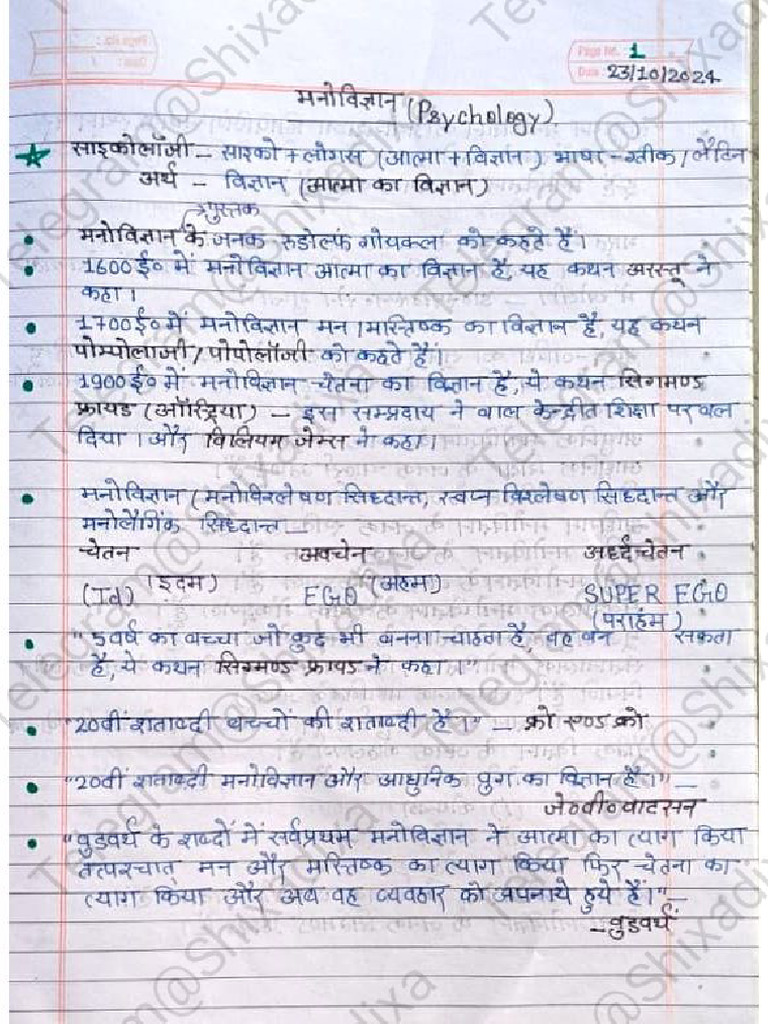 Page No. 1
Date 23/10/2024
मनोविज्ञान (Psychology)
साइकोलॉजी – साइको + लोगस (आत्मा + विज्ञान) भाषा – ग्रीक / लैटिन
अर्थ – विज्ञान (आत्मा का विज्ञान)
पुस्तक
मनोविज्ञान के जनक रुडोल्फ गोयकला को कहते हैं।
1600ई० में मनोविज्ञान आत्मा का विज्ञान है, यह कथन अरस्तू ने
कहा।
1700ई० में मनोविज्ञान मन / मास्तिष्क का विज्ञान है, यह कथन
पोम्पोलॉजी / पोपोलॉजी को कहते हैं।
1900ई० में मनोविज्ञान चेतना का विज्ञान है, ये कथन सिगमण्ड
फ्रायड (ऑस्ट्रिया) – इस सम्प्रदाय ने बाल केन्द्रीत शिक्षा पर बल
दिया। और विलियम जेम्स ने कहा।
मनोविज्ञान (मनोविश्लेषण सिध्दान्त, स्वप्न विश्लेषण सिध्दान्त और
मनोलैंगिक सिध्दान्त –
चेतन अवचेन अर्ध्दचेतन
(Id) (इदम) EGO (अहम) SUPER EGO
(पराहंम)
"5वर्ष का बच्चा जो कुछ भी बनना चाहता है, वह बन सकता
है, ये कथन सिगमण्ड फ्रायड ने कहा।"
"20वीं शताब्दी बच्चों की शताब्दी है।" – क्रो एण्ड क्रो
"20वीं शताब्दी मनोविज्ञान और आधुनिक युग का विज्ञान है।" –
जे०वी०वाटसन
"वुडवर्थ के शब्दों में सर्वप्रथम मनोविज्ञान ने आत्मा का त्याग किया
तत्पश्चात् मन और मास्तिष्क का त्याग किया फिर चेतना का
त्याग किया और अब वह व्यवहार को अपनाये हुये हैं।" –
– वुडवर्थ
Telegram@Shixadixa